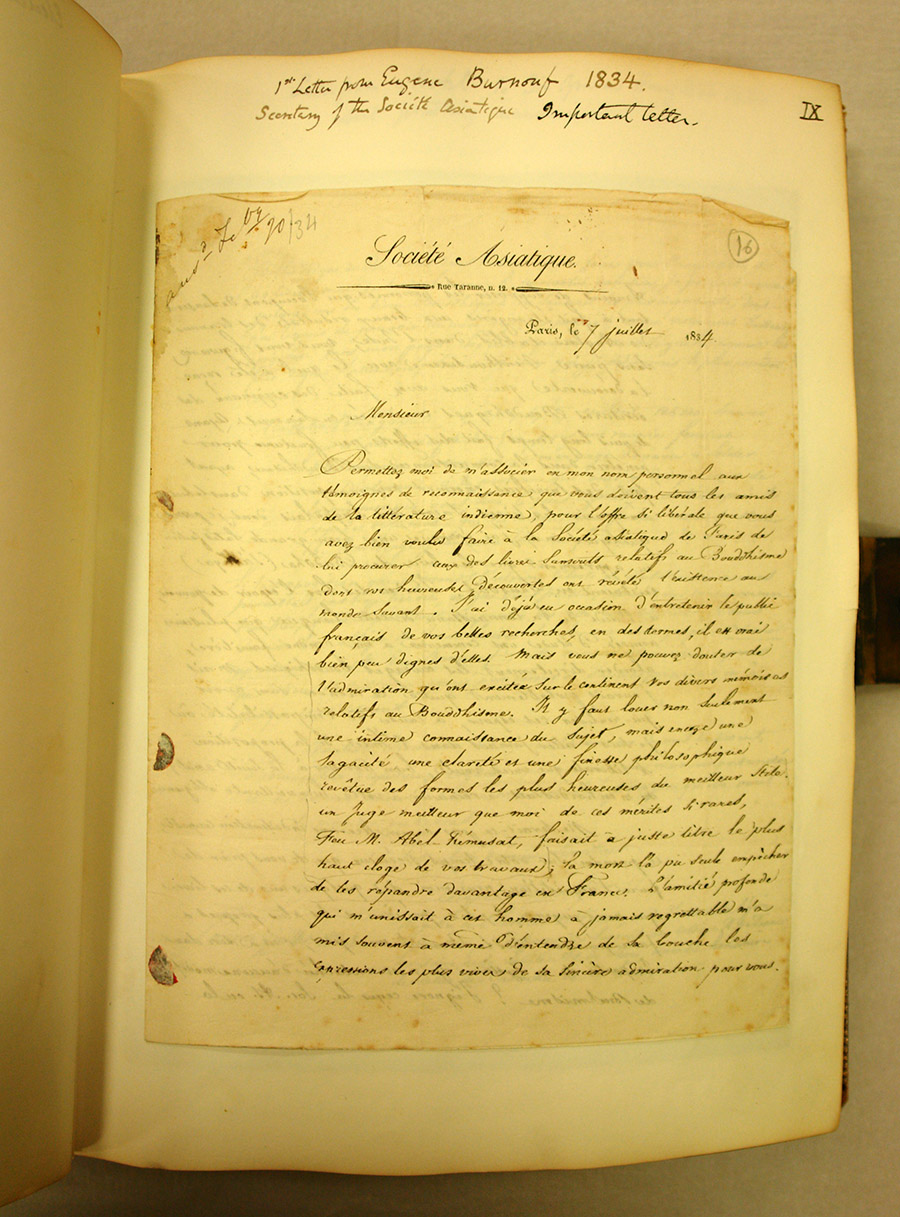 1st Letter from Eugene Burnouf 1834.
Secretary of the Société Asiatique Important letter.
IX
16
Société Asiatique.
Rue Taranne, n. 12.
Paris, le 7 juillet 1834.
Monsieur
Permettez moi de m'associer en mon nom personnel aux
témoignes de reconnaissance que vous doivent tous les amis
de la littérature indienne, pour l'offre si libérale que vous
avez bien voulu faire à la Société asiatique de Paris de
lui procurer ceux des livres Sanscrits relatifs au Bouddhisme
dont vos heureuses découvertes ont révélé l'existence au
monde Savant. J'ai déjà eu occasion d'entretenir le public
français de vos belles recherches, en des termes, il est vrai
bien peu dignes d'elles. Mais vous ne pouvez douter de
l'admiration qu'ont excitée sur le continent vos divers mémoires
relatifs au Bouddhisme. Il y faut louer non seulement
une intime connaissance du sujet, mais encore une
sagacité une clareté et une finesse philosophique
revêtue des formes les plus heureuses du meilleur stile.
un Juge meilleur que moi de ces mérites si rares,
Feu M. Abel Rémusat, faisait à juste titre le plus
haut eloge de vos travaux; la mort l'a pu seule empêcher
de les répandre davantage en France. L'amitié profonde
qui m'unissait à cet homme à jamais regrettable m'a
mis souvent à même d'entendre de sa bouche les
expressions les plus vives de sa sincère admiration pour vous.